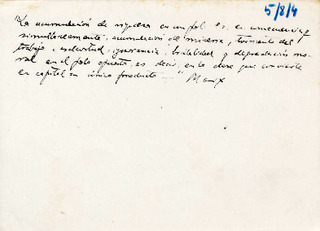 5/8/4
"La acumulación de riqueza en un polo es en consecuencia
simultáneamente acumulación de miseria, tormento del
trabajo, esclavitud, ignorancia, brutalidad y degradación mo-
ral en el polo opuesto, es decir, en la clase que convierte
en capital su único producto ..." Marx